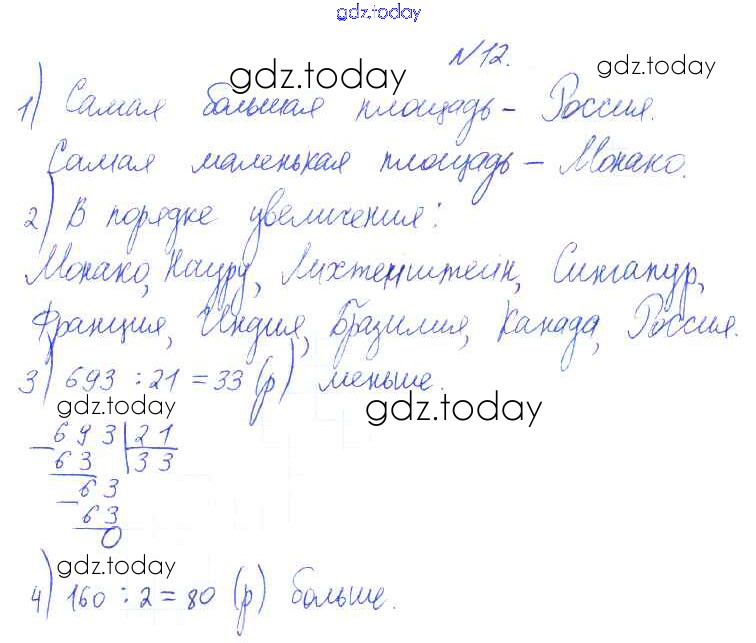 gdz.today
№12.
gdz.today
gdz.today
1) Самая большая площадь – Россия.
Самая маленькая площадь – Монако.
2) В порядке увеличения:
Монако, Науру, Лихтенштейн, Сингапур,
Франция, Индия, Бразилия, Канада, Россия.
3) 693 : 21 = 33 (р) меньше.
gdz.today
gdz.today
– 693 | 21
63 | 33
– 63
63
0
gdz.today
4) 160 : 2 = 80 (р) больше.